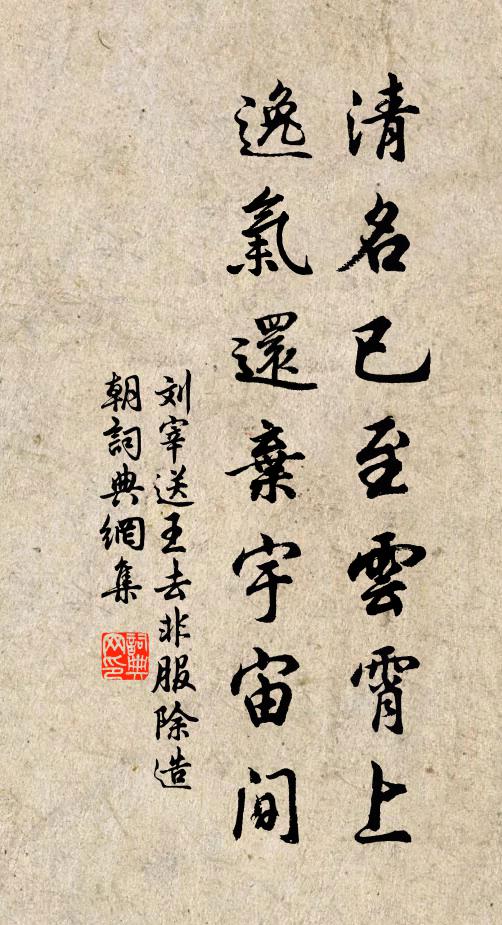 清名已至雲霄上
逸氣還棄宇宙間
刘宰送王去非服除造
朝詞典網集
詞典网印